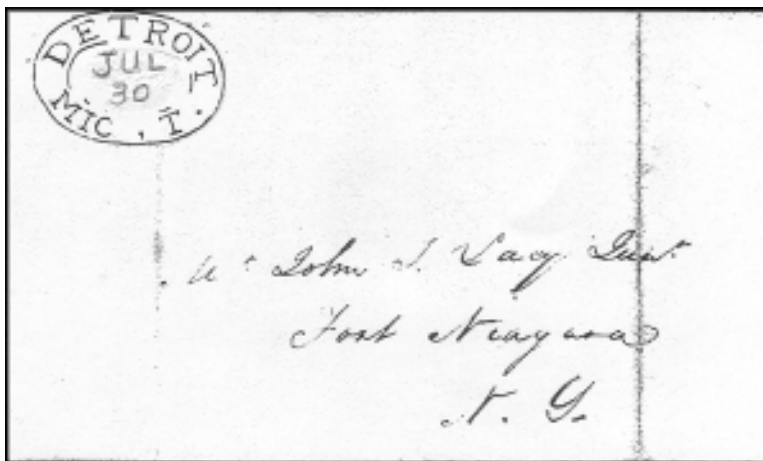 DETROIT
JUL
30
MIC. T.
Mr John S. Lacy Junr
Fort Niagara
N. Y.